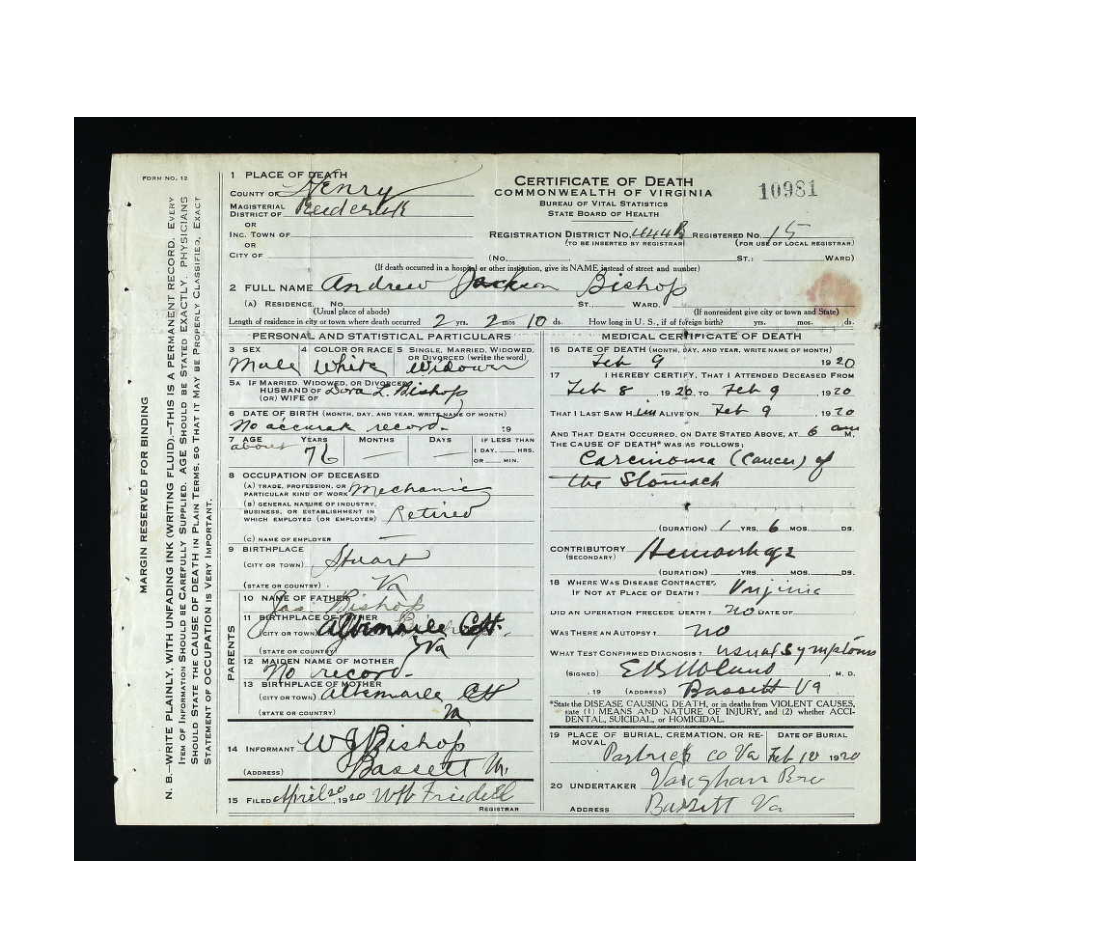 FORM NO. 12
MARGIN RESERVED FOR BINDING
N. B.—WRITE PLAINLY, WITH UNFADING INK (WRITING FLUID).—THIS IS A PERMANENT RECORD. EVERY
ITEM OF INFORMATION SHOULD BE CAREFULLY SUPPLIED. AGE SHOULD BE STATED EXACTLY. PHYSICIANS
SHOULD STATE THE CAUSE OF DEATH IN PLAIN TERMS, SO THAT IT MAY BE PROPERLY CLASSIFIED. EXACT
STATEMENT OF OCCUPATION IS VERY IMPORTANT.
1 PLACE OF DEATH
COUNTY OF Henry
MAGISTERIAL
DISTRICT OF
OR
INC. TOWN OF
OR
CITY OF
CERTIFICATE OF DEATH
COMMONWEALTH OF VIRGINIA
BUREAU OF VITAL STATISTICS
STATE BOARD OF HEALTH
10981
REGISTRATION DISTRICT NO. REGISTERED NO. 15
(TO BE INSERTED BY REGISTRAR) (FOR USE OF LOCAL REGISTRAR)
(NO. ST.; WARD)
(If death occurred in a hospital or other institution, give its NAME instead of street and number)
2 FULL NAME Andrew Jackson Bishop
(A) RESIDENCE. No. ST. WARD.
(Usual place of abode) (If nonresident give city or town and State)
Length of residence in city or town where death occurred 2 yrs. 2 mos 10 ds. How long in U. S., if of foreign birth? yrs. mos. ds.
PERSONAL AND STATISTICAL PARTICULARS
3 SEX 4 COLOR OR RACE 5 SINGLE, MARRIED, WIDOWED,
OR DIVORCED (write the word)
Male White Widower
5A IF MARRIED, WIDOWED, OR DIVORCED
HUSBAND OF Dora L. Bishop
(OR) WIFE OF
6 DATE OF BIRTH (MONTH, DAY, AND YEAR, WRITE NAME OF MONTH)
No accurate record- 19
7 AGE YEARS MONTHS DAYS IF LESS THAN
about 76 — — 1 DAY, HRS.
OR MIN.
8 OCCUPATION OF DECEASED
(A) TRADE, PROFESSION, OR
PARTICULAR KIND OF WORK Mechanic
(B) GENERAL NATURE OF INDUSTRY,
BUSINESS, OR ESTABLISHMENT IN
WHICH EMPLOYED (OR EMPLOYER) Retired
(C) NAME OF EMPLOYER —
9 BIRTHPLACE
(CITY OR TOWN) Stuart
(STATE OR COUNTRY) Va
PARENTS
10 NAME OF FATHER
Jas Bishop
11 BIRTHPLACE OF FATHER
(CITY OR TOWN) Albemarle
(STATE OR COUNTRY) Va
12 MAIDEN NAME OF MOTHER
No record-
13 BIRTHPLACE OF MOTHER
(CITY OR TOWN) Albemarle CH
(STATE OR COUNTRY) Va
14 INFORMANT W J Bishop
(ADDRESS) Bassett Va.
15 FILED April 20 1920
REGISTRAR
MEDICAL CERTIFICATE OF DEATH
16 DATE OF DEATH (MONTH, DAY, AND YEAR, WRITE NAME OF MONTH)
Feb 9 1920
17 I HEREBY CERTIFY, THAT I ATTENDED DECEASED FROM
Feb 8, 1920, TO Feb 9, 1920
THAT I LAST SAW HIM ALIVE ON Feb 9, 1920
AND THAT DEATH OCCURRED, ON DATE STATED ABOVE, AT 6 am M.
THE CAUSE OF DEATH* WAS AS FOLLOWS:
Carcinoma (Cancer) of
the Stomach
(DURATION) 1 YRS. 6 MOS. DS.
CONTRIBUTORY Hemorrhage
(SECONDARY)
(DURATION) YRS. MOS. DS.
18 WHERE WAS DISEASE CONTRACTED,
IF NOT AT PLACE OF DEATH? Virginia
DID AN OPERATION PRECEDE DEATH? no DATE OF
WAS THERE AN AUTOPSY? no
WHAT TEST CONFIRMED DIAGNOSIS? usual symptoms
(SIGNED) , M. D.
, 19 (ADDRESS) Bassett Va
*State the DISEASE CAUSING DEATH, or in deaths from VIOLENT CAUSES,
state (1) MEANS AND NATURE OF INJURY, and (2) whether ACCI-
DENTAL, SUICIDAL, or HOMICIDAL.
19 PLACE OF BURIAL, CREMATION, OR RE- DATE OF BURIAL
MOVAL
Patrick co Va Feb 10 1920
20 UNDERTAKER Vaughan Bro
ADDRESS Bassett Va